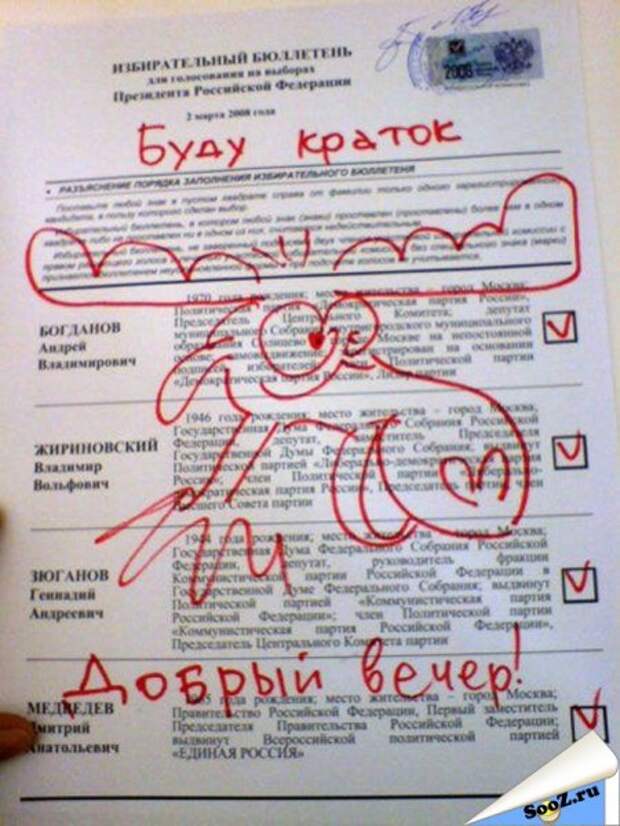 2008
ИЗБИРАТЕЛЬНЫЙ БЮЛЛЕТЕНЬ
для голосования на выборах
Президента Российской Федерации
2 марта 2008 года
Буду краток
• РАЗЪЯСНЕНИЕ ПОРЯДКА ЗАПОЛНЕНИЯ ИЗБИРАТЕЛЬНОГО БЮЛЛЕТЕНЯ
Поставьте любой знак в пустом квадрате справа от фамилии только одного
кандидата, в пользу которого сделан выбор.
БОГДАНОВ
Андрей
Владимирович
1970 года рождения; место жительства – город Москва;
Политическая партия «Демократическая партия России»,
Председатель Центрального Комитета; депутат
муниципального Собрания
Москве на непостоянной
основе; самовыдвижение; зарегистрирован на основании
подписей избирателей; член Политической партии
«Демократическая партия России», Лидер партии
ЖИРИНОВСКИЙ
Владимир
Вольфович
1946 года рождения; место жительства – город Москва;
Государственная Дума Федерального Собрания Российской
Федерации, депутат, заместитель Председателя
Государственной Думы Федерального Собрания; выдвинут
Политической партией «Либерально-демократическая партия
России»; член Политической партии «Либерально-
демократическая партия России», Председатель партии, член
Высшего Совета партии
ЗЮГАНОВ
Геннадий
Андреевич
1944 года рождения; место жительства – город Москва;
Государственная Дума Федерального Собрания Российской
Федерации, депутат, руководитель фракции
Коммунистической партии Российской Федерации в
Государственной Думе Федерального Собрания; выдвинут
Политической партией «Коммунистическая партия
Российской Федерации»; член Политической партии
«Коммунистическая партия Российской Федерации»,
Председатель Центрального Комитета партии
Добрый вечер!
МЕДВЕДЕВ
Дмитрий
Анатольевич
1965 года рождения; место жительства – город Москва;
Правительство Российской Федерации, Первый заместитель
Председателя Правительства Российской Федерации;
выдвинут Всероссийской политической партией
«ЕДИНАЯ РОССИЯ»
SooZ.ru